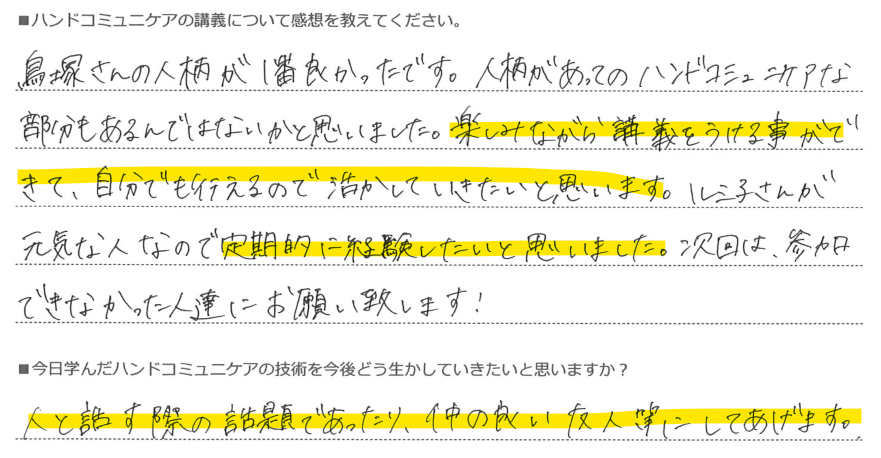 ■ハンドコミュニケアの講義について感想を教えてください。
鳥塚さんの人柄が1番良かったです。人柄があってのハンドコミュニケアな
部分もあるんではないかと思いました。楽しみながら講義をうける事がで
きて、自分でも行えるので活かしていきたいと思います。ルミ子さんが
元気な人なので定期的に経験したいと思いました。次回は、参加
できなかった人達にお願い致します!
■今日学んだハンドコミュニケアの技術を今後どう生かしていきたいと思いますか？
人と話す際の話題であったり、仲の良い友人等にしてあげます。